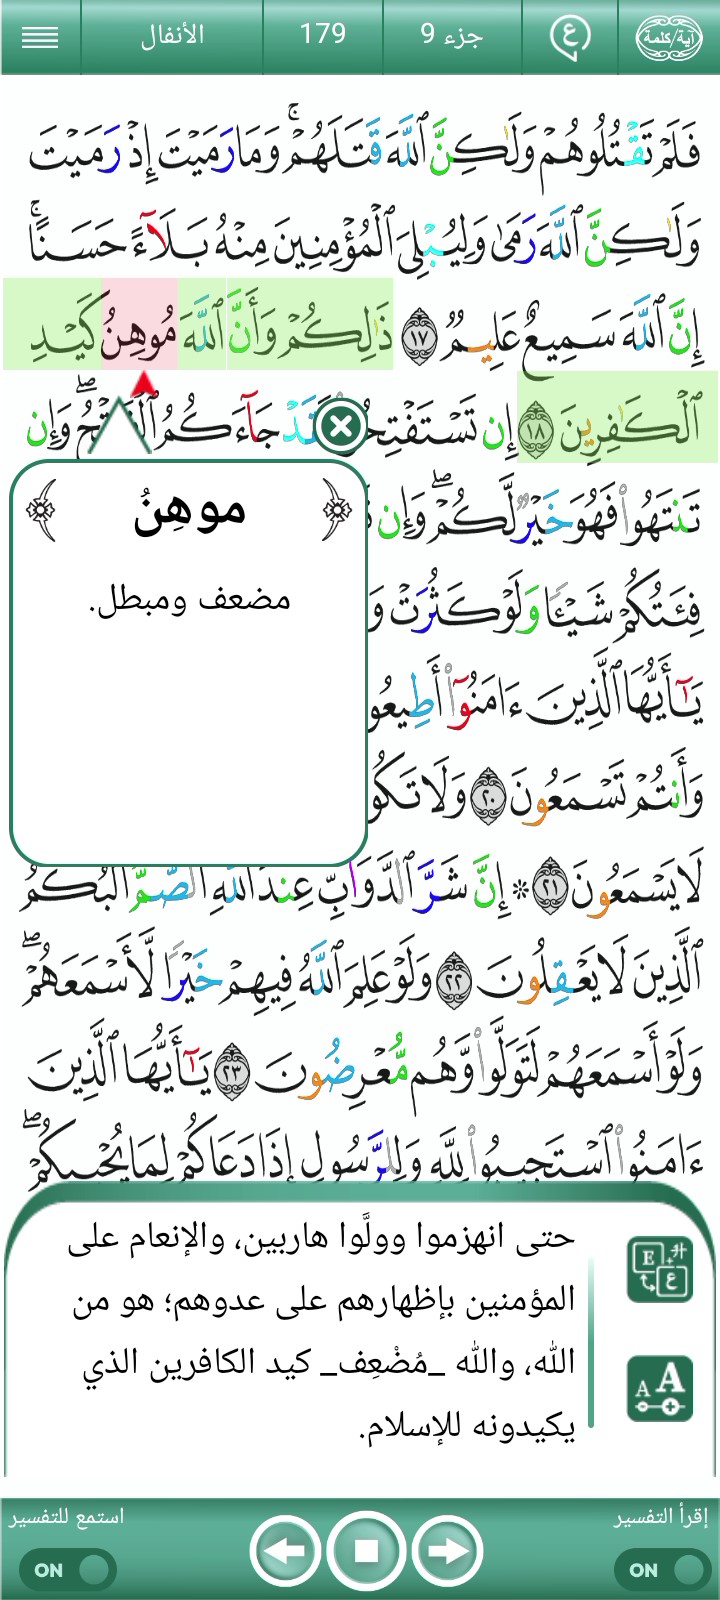 آية/كلمة
ع
جزء 9
179
الأنفال
فَلَمْ تَقْتُلُوهُمْ وَلَٰكِنَّ ٱللَّهَ قَتَلَهُمْ ۚ وَمَا رَمَيْتَ إِذْ رَمَيْتَ
وَلَٰكِنَّ ٱللَّهَ رَمَىٰ وَلِيُبْلِىَ ٱلْمُؤْمِنِينَ مِنْهُ بَلَآءً حَسَنًا ۚ
إِنَّ ٱللَّهَ سَمِيعٌ عَلِيمٌ ١٧ ذَٰلِكُمْ وَأَنَّ ٱللَّهَ مُوهِنُ كَيْدِ
ٱلْكَٰفِرِينَ ١٨ إِن جَآءَكُمُ وَإِن
موهِنُ
مضعف ومبطل.
تَنتَهُوا۟ فَهُوَ خَيْرٌ لَّكُمْ ۖ وَإِن
فِئَتُكُمْ شَيْـًٔا وَلَوْ كَثُرَتْ
يَٰٓأَيُّهَا ٱلَّذِينَ ءَامَنُوٓا۟
وَأَنتُمْ تَسْمَعُونَ ٢٠ وَلَا
لَا يَسْمَعُونَ ٢١ ۞ إِنَّ شَرَّ ٱلدَّوَآبِّ عِندَ ٱللَّهِ ٱلصُّمُّ ٱلْبُكْمُ
ٱلَّذِينَ لَا يَعْقِلُونَ ٢٢ وَلَوْ عَلِمَ ٱللَّهُ فِيهِمْ خَيْرًا لَّأَسْمَعَهُمْ ۖ
وَلَوْ أَسْمَعَهُمْ لَتَوَلَّوا۟ وَّهُم مُّعْرِضُونَ ٢٣ يَٰٓأَيُّهَا ٱلَّذِينَ
ءَامَنُوا۟ ٱسْتَجِيبُوا۟ لِلَّهِ وَلِلرَّسُولِ إِذَا دَعَاكُمْ لِمَا يُحْيِيكُمْ ۖ
حتى انهزموا وولَّوا هاربين، والإنعام على
المؤمنين بإظهارهم على عدوهم؛ هو من
الله، والله _مُضْعِف_ كيد الكافرين الذي
يكيدونه للإسلام.
إقرأ التفسير
استمع للتفسير
ON
ON